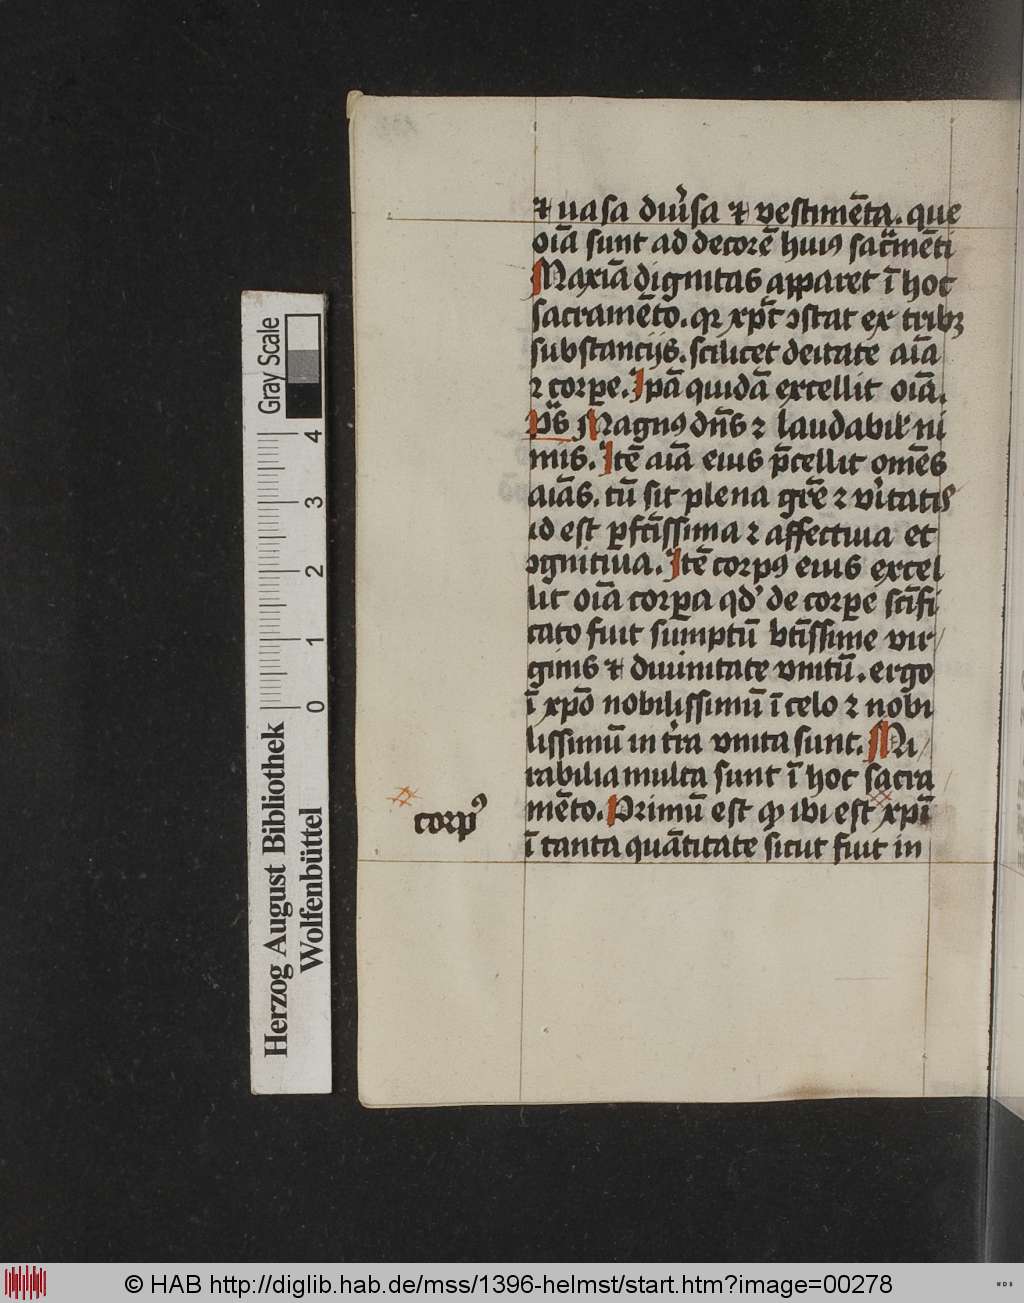 ⁊ uasa diuʼsa ⁊ vestimēta. que
oīa sunt ad decorē huiꝰ sacͣmēti
Maxīa dignitas apparet ī hoc
sacramēto. qꝛ xp̄c ↄstat ex tribꝫ
substancijs. scilicet deitate aīa
ꝛ corꝑe. Ipā quidā excellit oīa.
ps̄ Magnꝰ dn̄s ꝛ laudabilʼ ni
mis. Itē aīa eius p̄cellit om̄es
aīas. cū sit plena grē ꝛ vʼitatis
id est ꝑfctīssima ꝛ affectiua et
ↄgnitiua. Itē corpꝰ eius excel
lit oīa corꝑa qdʼ de corꝑe sctīfi
cato fuit sumptū btīssime vir/
ginis ⁊ diuinitate vnitū. ergo
ī xp̄o nobilissimū ī celo ꝛ nobi
lissimū in tʼra vnita sunt. Mi/
rabilia multa sunt ī hoc sacra
mēto. Primū est ꝙ ibi est xp̄i
corpꝰ
ī tanta quātitate sicut fuit in
Herzog August Bibliothek
Wolfenbüttel
Gray Scale
0 1 2 3 4
© HAB http://diglib.hab.de/mss/1396-helmst/start.htm?image=00278
WDB